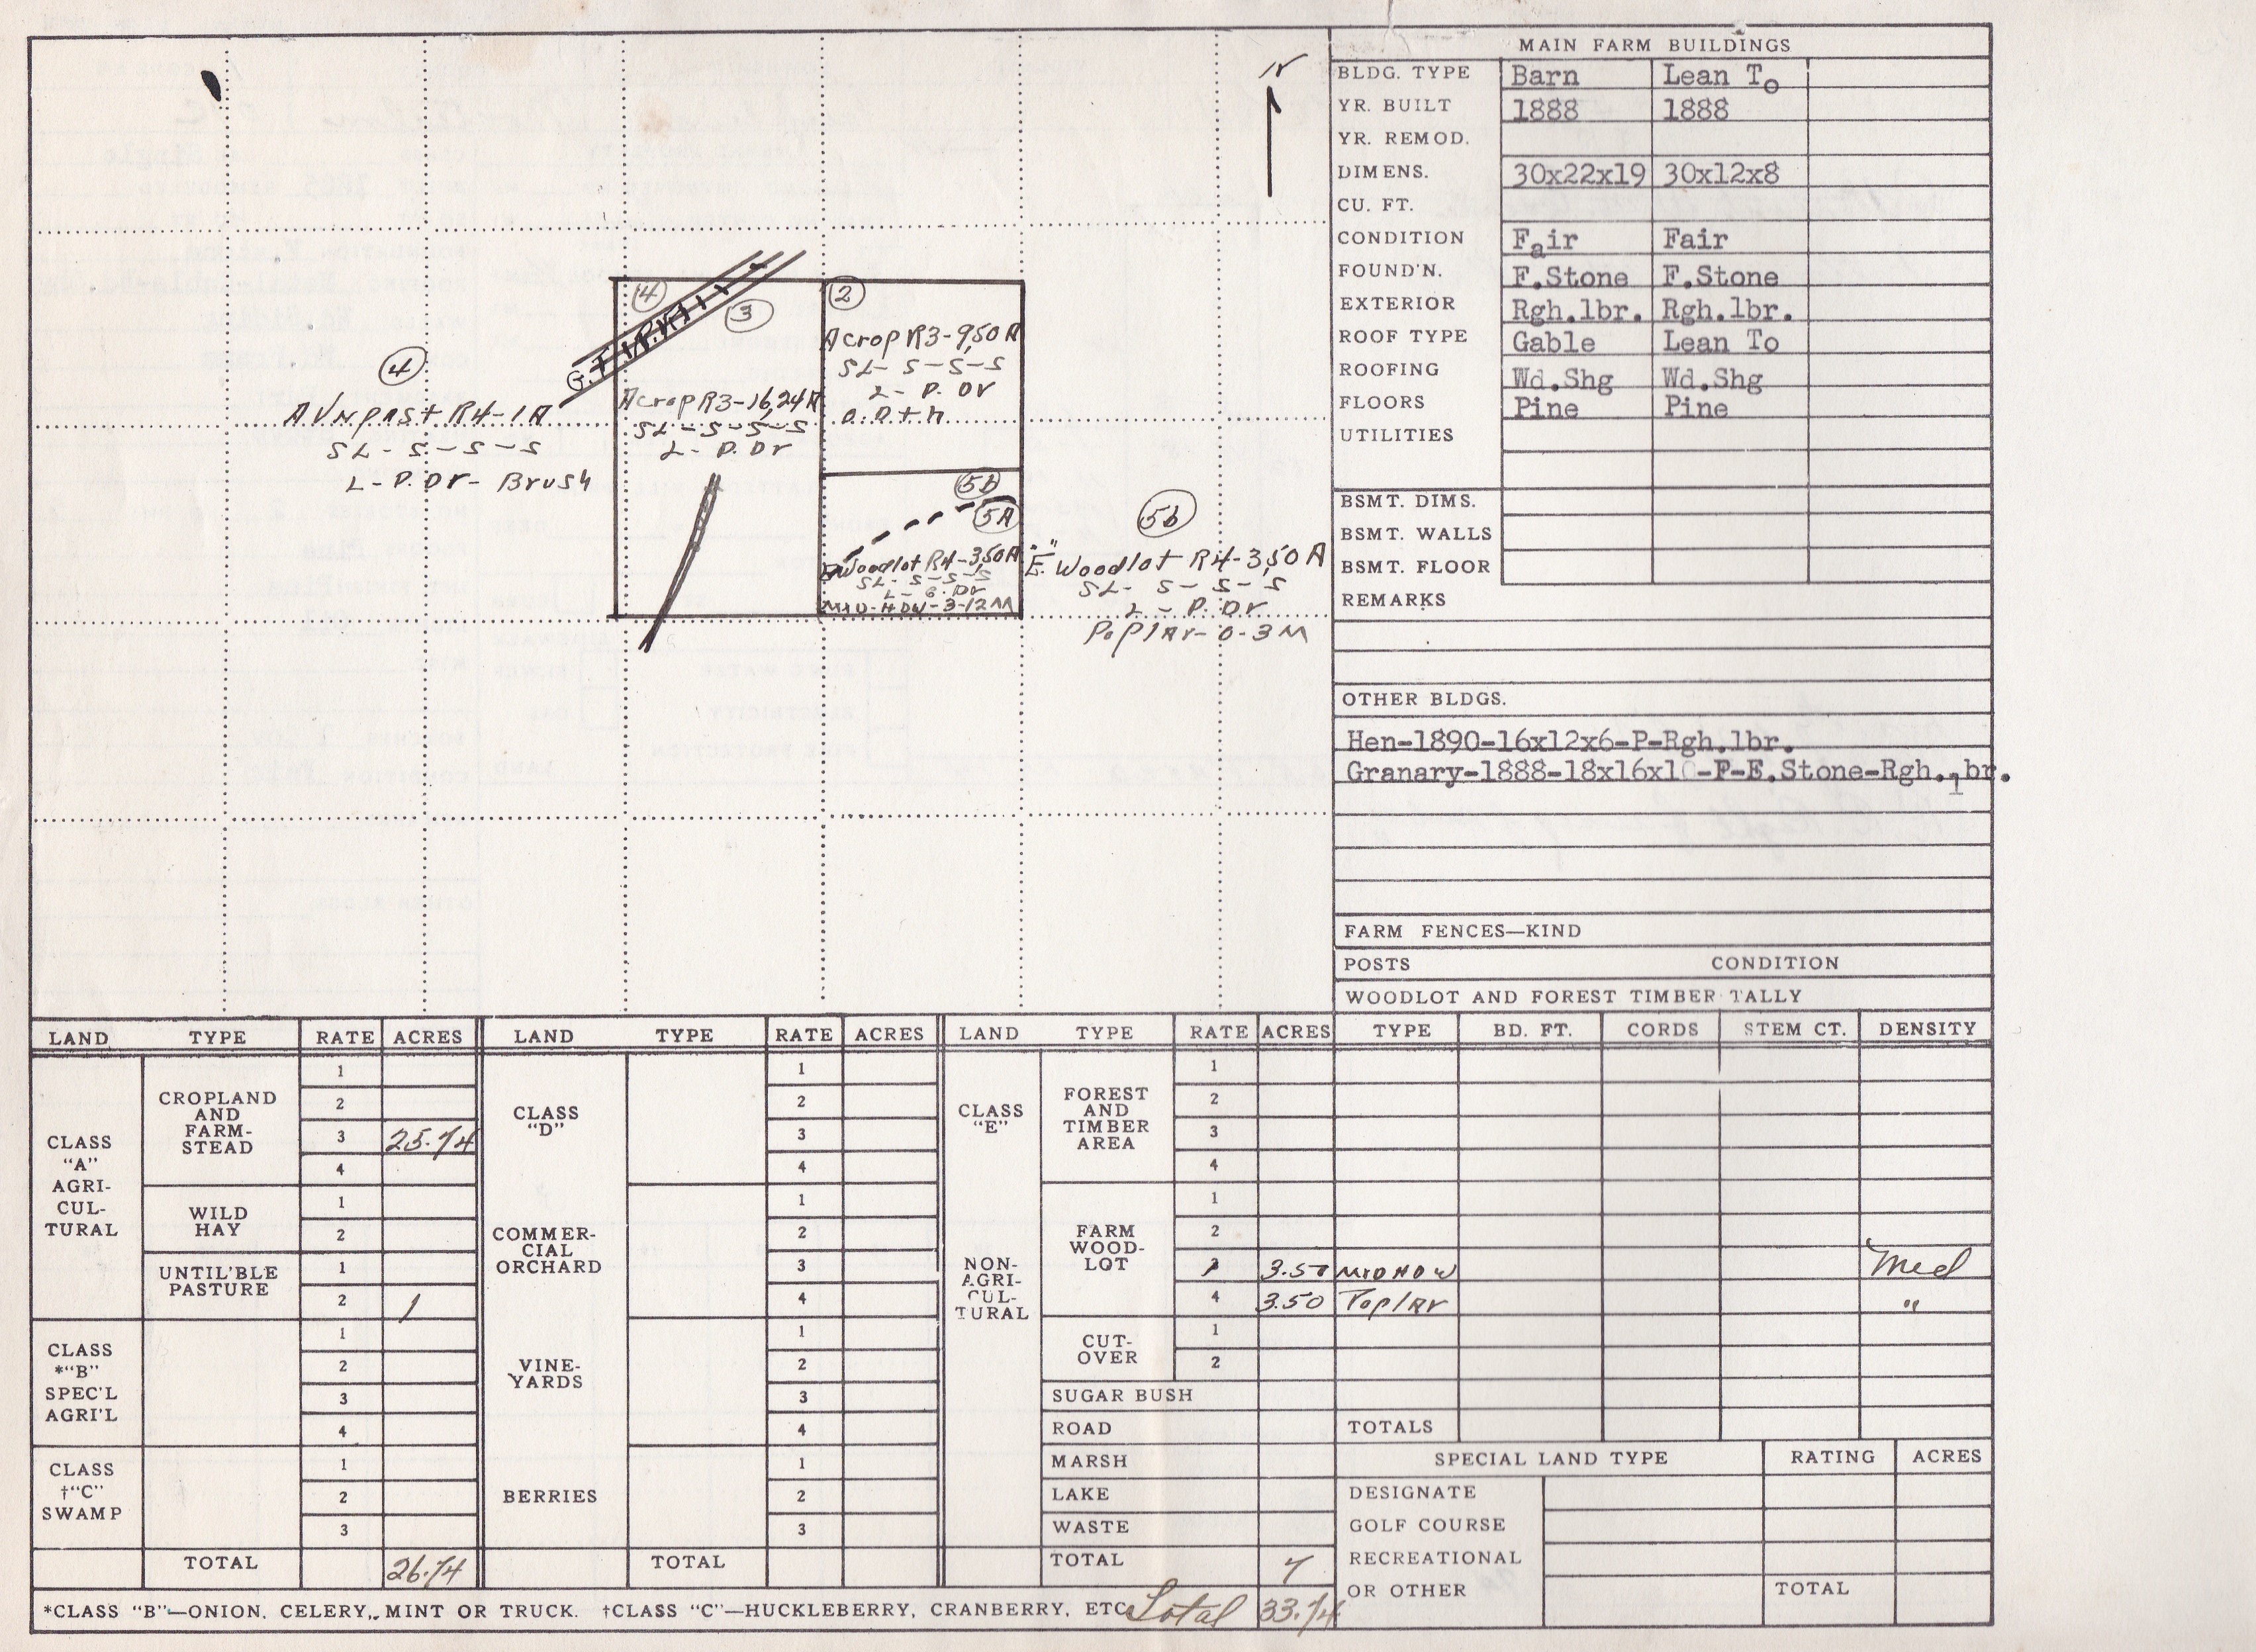 N
④
③
②
G.T.W.R.R.
④
A Vnpast R4-1A
SL - S - S - S
L - P. Dr - Brush
Acrop R3-16.24A
SL - S - S - S
L - P. Dr
Acrop R3-9.50A
SL - S - S - S
L - P. Dr
5b
5A
Woodlot R4-3.50A
SL - S - S - S
MXD-HDW-3-12M
5b
"E" Woodlot R4-3.50A
SL - S - S - S
L - P. Dr
Poplar - 0-3M
MAIN FARM BUILDINGS
BLDG. TYPE Barn Lean To
YR. BUILT 1888 1888
YR. REMOD.
DIMENS. 30x22x19 30x12x8
CU. FT.
CONDITION Fair Fair
FOUND'N. F.Stone F.Stone
EXTERIOR Rgh.lbr. Rgh.lbr.
ROOF TYPE Gable Lean To
ROOFING Wd.Shg Wd.Shg
FLOORS Pine Pine
UTILITIES
BSMT. DIMS.
BSMT. WALLS
BSMT. FLOOR
REMARKS
OTHER BLDGS.
Hen-1890-16x12x6-P-Rgh.lbr.
Granary-1888-18x16x10-F-E.Stone-Rgh.lbr.
FARM FENCES—KIND
POSTS CONDITION
WOODLOT AND FOREST TIMBER TALLY
LAND TYPE RATE ACRES LAND TYPE RATE ACRES LAND TYPE RATE ACRES TYPE BD. FT. CORDS STEM CT. DENSITY
CLASS
"A"
AGRI-
CUL-
TURAL
CROPLAND
AND
FARM-
STEAD
1
2
3 25.74
4
WILD
HAY
1
2
UNTIL'BLE
PASTURE
1
2 1
CLASS
*"B"
SPEC'L
AGRI'L
1
2
3
4
CLASS
†"C"
SWAMP
1
2
3
TOTAL 26.74
CLASS
"D"
1
2
3
4
COMMER-
CIAL
ORCHARD
1
2
3
4
VINE-
YARDS
1
2
3
4
BERRIES
1
2
3
TOTAL
CLASS
"E"
NON-
AGRI-
CUL-
TURAL
FOREST
AND
TIMBER
AREA
1
2
3
4
FARM
WOOD-
LOT
1
2
3 3.50 MXD HDW Med
4 3.50 Poplar "
CUT-
OVER
1
2
SUGAR BUSH
ROAD
MARSH
LAKE
WASTE
TOTAL 7
TOTALS
SPECIAL LAND TYPE RATING ACRES
DESIGNATE
GOLF COURSE
RECREATIONAL
OR OTHER
TOTAL
*CLASS "B"—ONION, CELERY, MINT OR TRUCK. †CLASS "C"—HUCKLEBERRY, CRANBERRY, ETC. Total 33.74